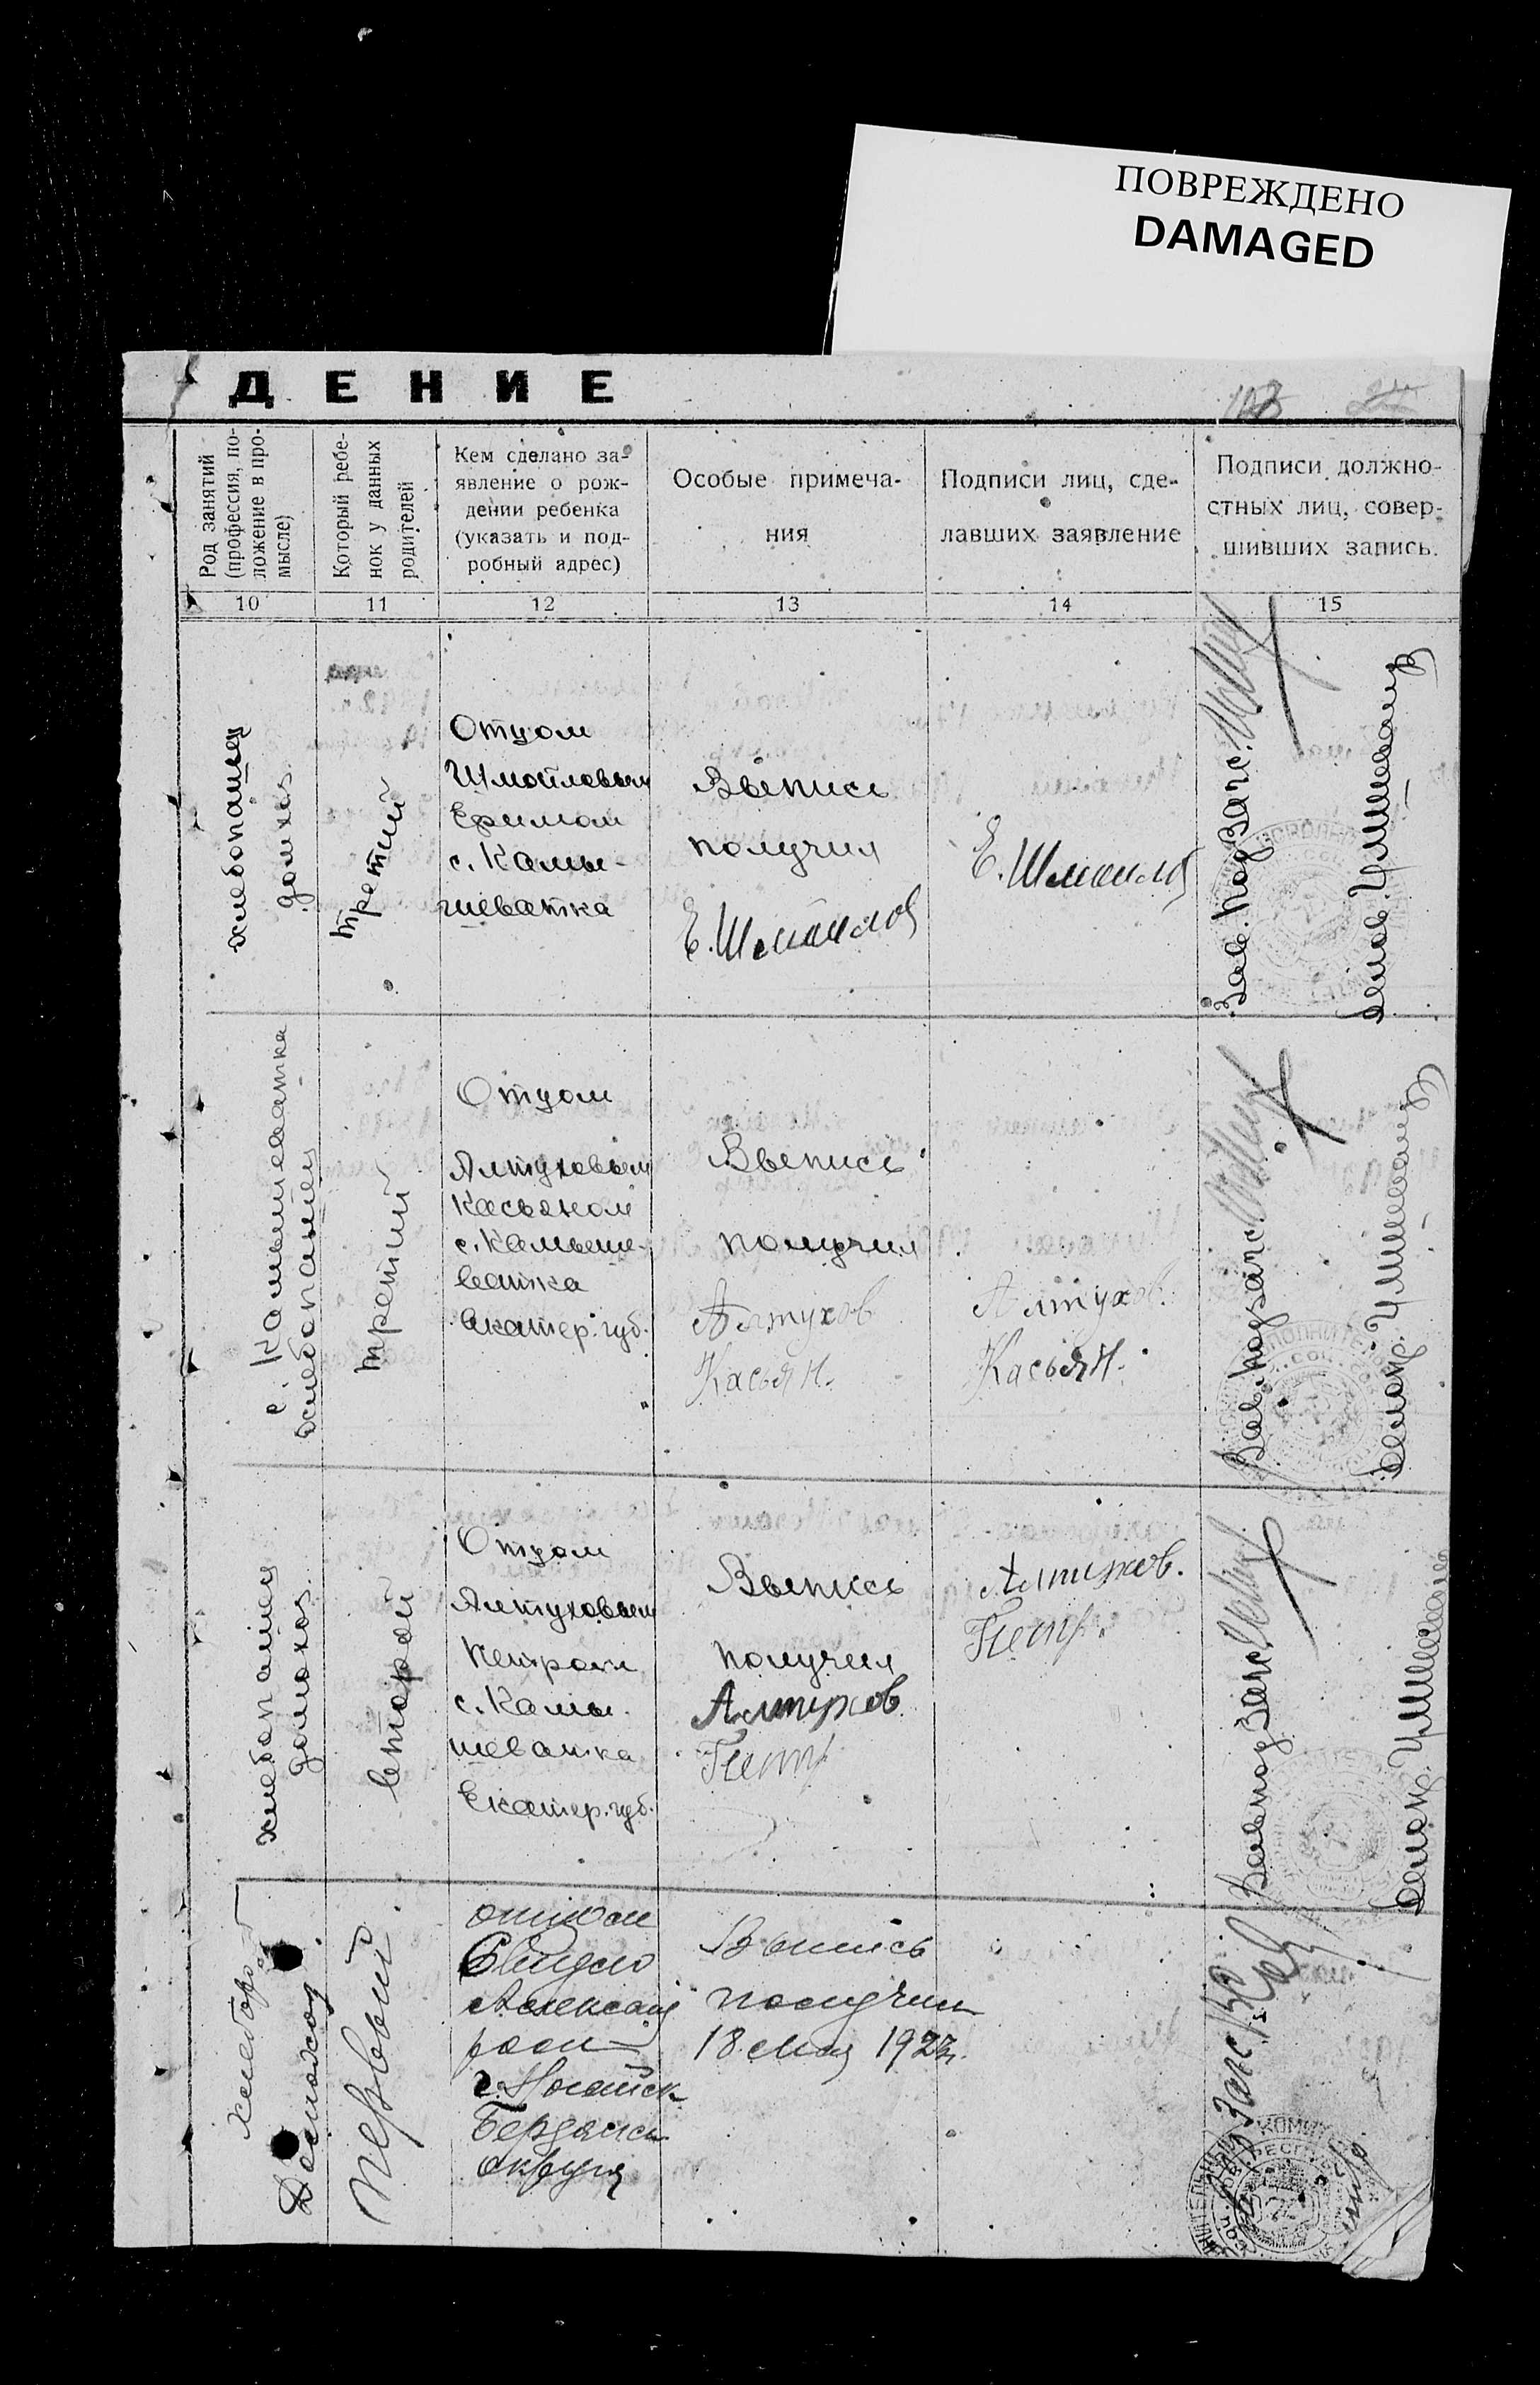 ПОВРЕЖДЕНО
DAMAGED
ДЕНИЕ
Род занятий
(профессия, по-
ложение в про-
мысле)
Который ребе-
нок у данных
родителей
Кем сделано за-
явление о рож-
дении ребенка
(указать и под-
робный адрес)
Особые примеча-
ния
Подписи лиц, сде-
лавших заявление
Подписи должно-
стных лиц, совер-
шивших запись.
10
11
12
13
14
15
хлебопашец
домхоз.
третий
Отцом
Шмойловым
Ефимом
с. Камы-
шеватка
Выпись
получил
Е. Шмойлов
Е. Шмойлов
Зав. подЗагс.
с. Камышеватка
хлебопашец
третий
Отцом
Алтуховым
Касьяном
с. Камыше-
ватка
Екатер. губ.
Выпись
получил
Алтухов
Касьян.
Алтухов.
Касьян.
Зав. подзагс.
хлебопашец
домохоз.
второй
Отцом
Алтуховым
Петром
с. Камы-
шеватка
Екатер. губ.
Выпись
получил
Алтухов
Петр
Алтухов.
Петр.
Завподзагс
хлебороб
Домохоз.
Первый.
отцом
Александ
ром
г. Ногайск
Бердянск
округа
Выпись
получил
18 Мая 1923 г.
Загс